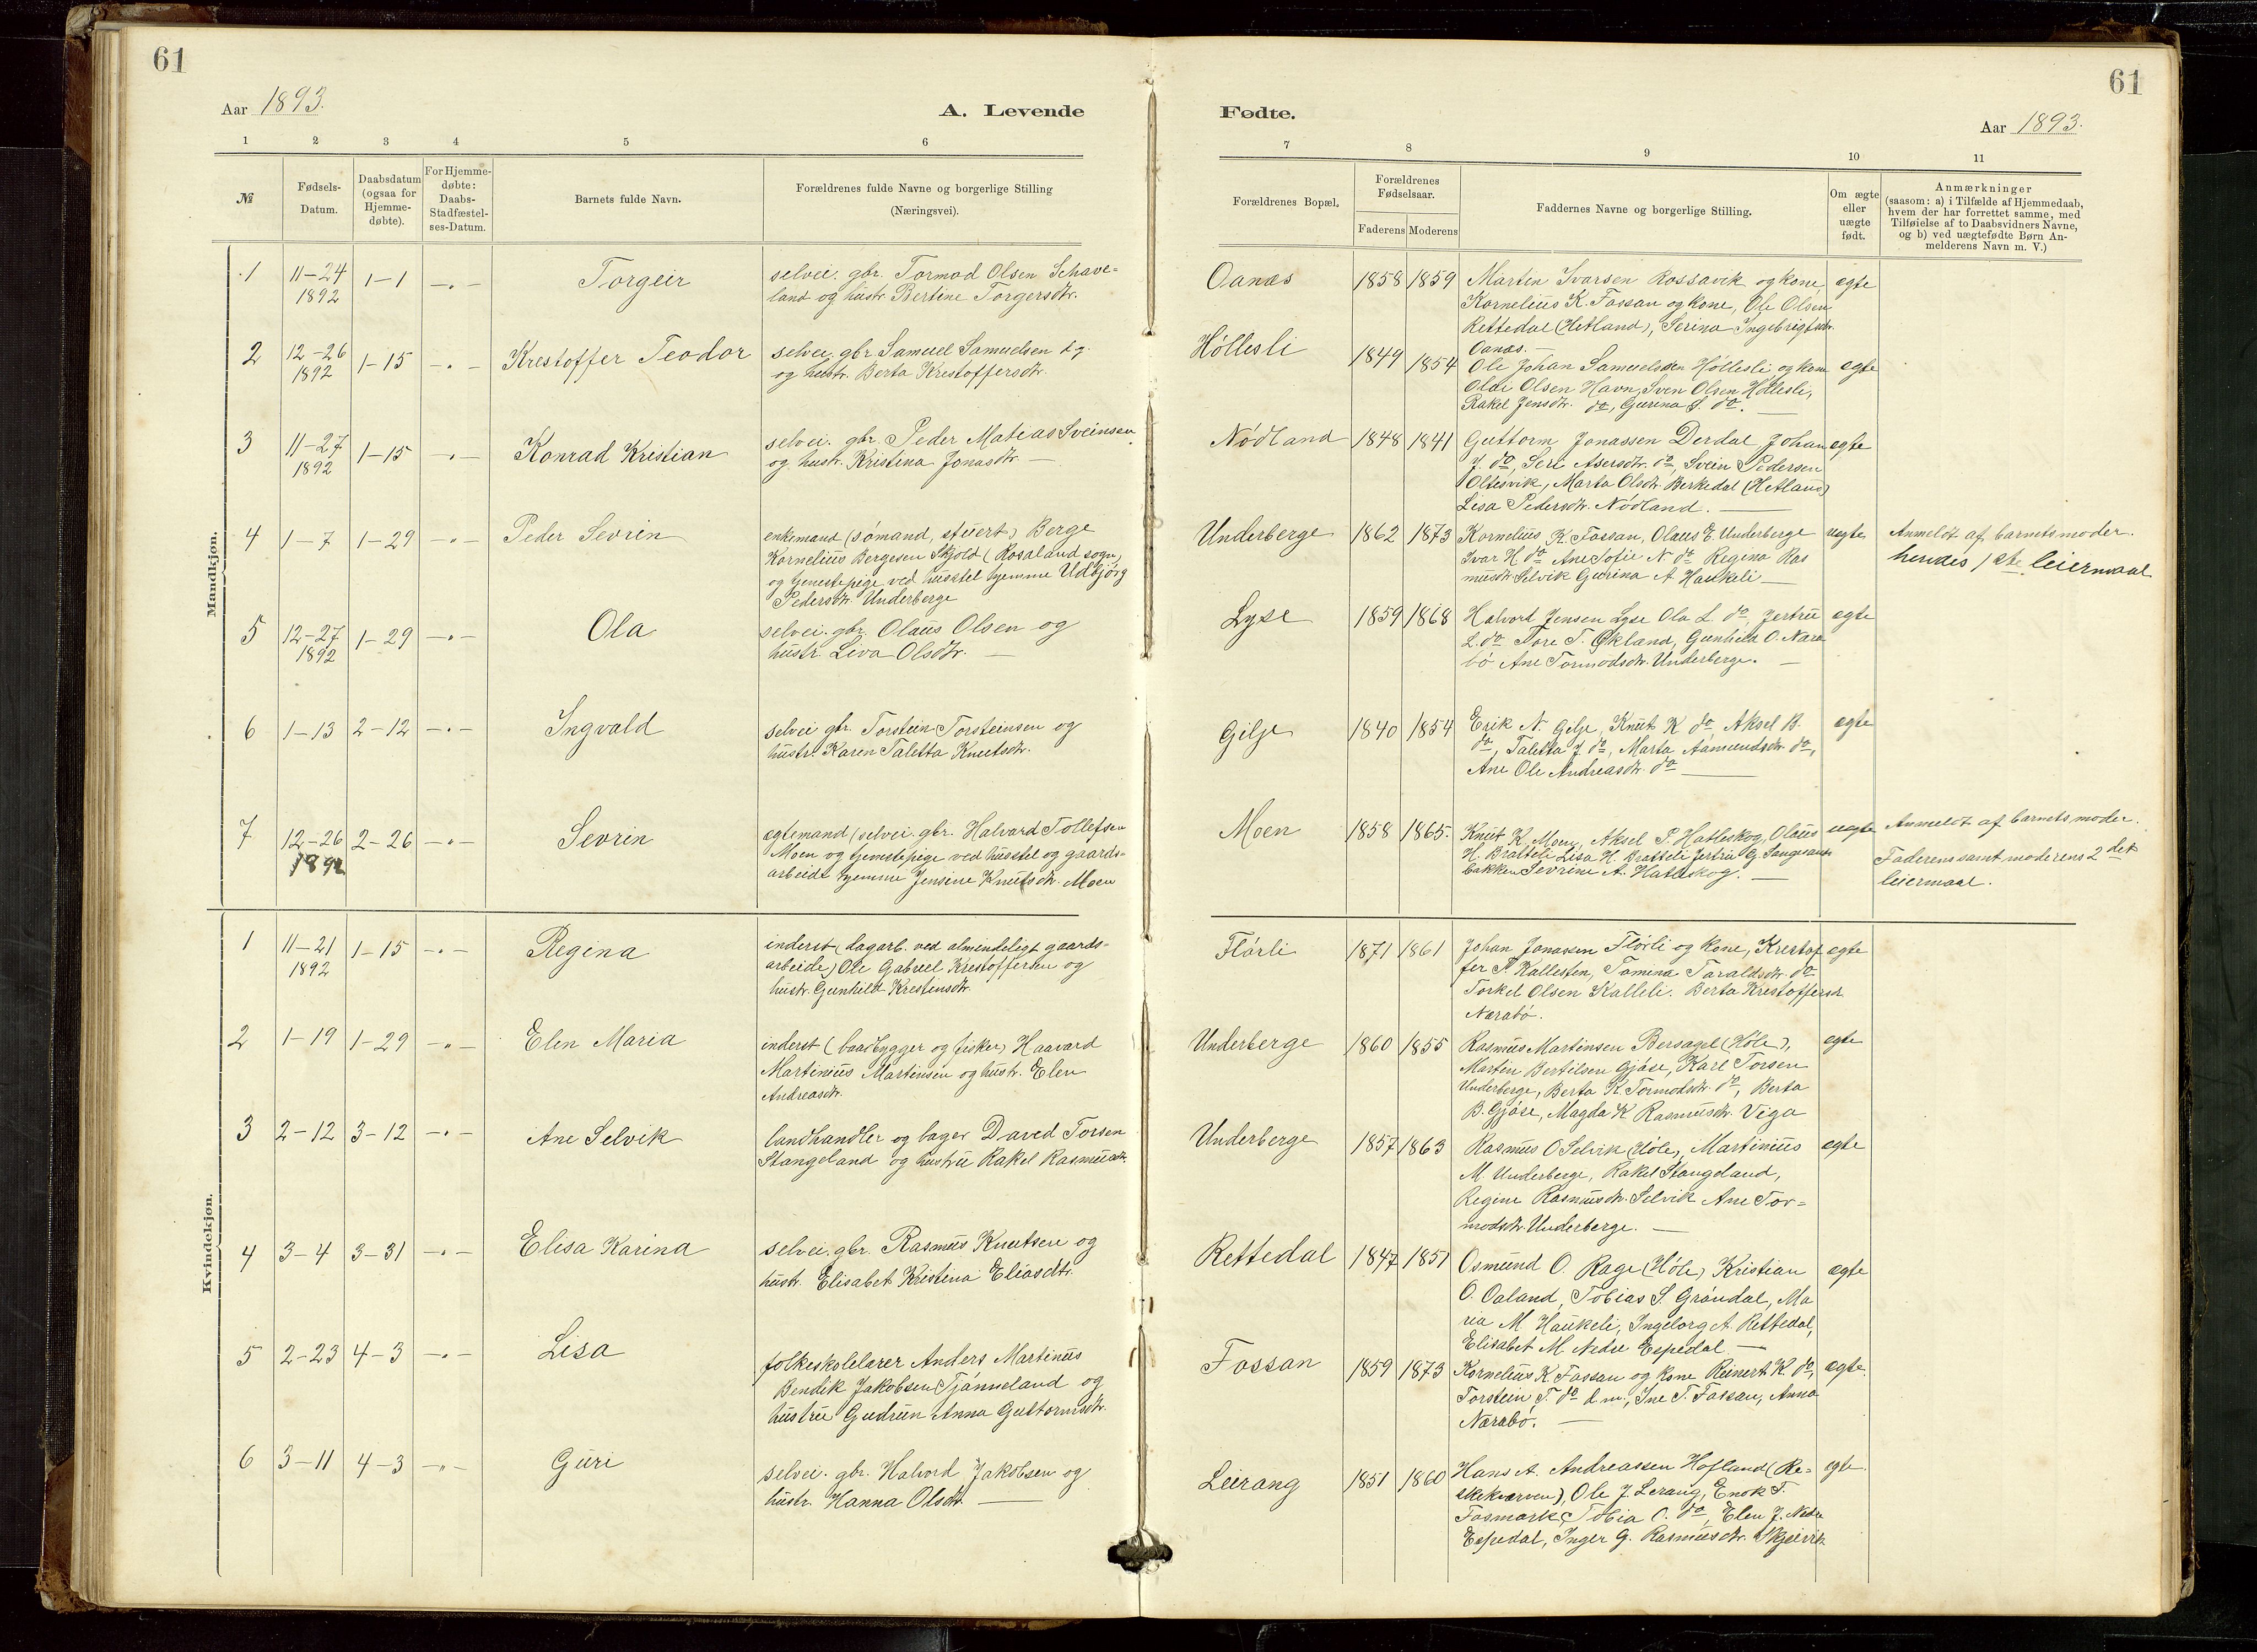 61
Aar 1893.
A. Levende
1 2 3 4 5 6
№
Fødsels-Datum.
Daabsdatum (ogsaa for Hjemme-døbte).
For Hjemme-døbte: Daabs-Stadfæstel-ses-Datum.
Barnets fulde Navn.
Forældrenes fulde Navne og borgerlige Stilling
(Næringsvei).
Mandkjøn.
1 11-24 1892 1-1 -"- Torgeir
selvei. gbr. Tormod Olsen Schave-
land og hustr. Bertine Torgersdtr.
2 12-26 1892 1-15 -"- Krestoffer Teodor
selvei. gbr Samuel Samuelsen
og hustr. Berta Krestoffersdtr.
3 11-27 1892 1-15 -"- Konrad Kristian
selvei. gbr. Peder Matias Sveinsen
og hustr. Kristina Jonasdtr. —
4 1-7 1-29 -"- Peder Sevrin
enkemand (sømand, stuert) Berge
Kornelius Bergesen Skjold (Rosaland sogn)
og tjenestepige ved husstel hjemme Udbjørg
Pedersdtr. Underberge
5 12-27 1892 1-29 -"- Ola
selvei. gbr. Olaus Olsen og
hustr. Liva Olsdtr. —
6 1-13 2-12 -"- Ingvald
selvei gbr. Torstein Torsteinsen og
hustr. Karen Taletta Knutsdtr.
7 12-26 1892 2-26 -"- Sevrin
egtemand (selvei. gbr. Halvard Tollefsen
Moen og tjenestepige ved husstel og gaards-
arbeide hjemme Jensine Knutsdtr. Moen
Kvindekjøn.
1 11-21 1892 1-15 -"- Regina
inderst (dagarb. ved almendeligt gaards-
arbeide) Ole Gabriel Krestoffersen og
hustr. Gunhild Krestensdtr.
2 1-19 1-29 -"- Elen Maria
inderst (baadbygger og fisker) Haavard
Martinius Martinsen og hustr. Elen
Andreasdtr.
3 2-12 3-12 -"- Ane Selvik
landhandler og bager David Torsen
Stangeland og hustru Rakel Rasmusdtr.
4 3-4 3-31 -"- Elisa Karina
selvei. gbr. Rasmus Knutsen og
hustr. Elisabet Kristina Eliasdtr.
5 2-23 4-3 -"- Lisa
folkeskolelærer Anders Martinus
Bendik Jakobsen Tjånneland og
hustru Gudrun Anna Guttormsdtr.
6 3-11 4-3 -"- Guri
selvei. gbr. Halvord Jakobsen og
hustr. Hanna Olsdtr. —
61
Fødte.
Aar 1893.
7 8 9 10 11
Forældrenes Bopæl.
Forældrenes Fødselsaar.
Faderens Moderens
Faddernes Navne og borgerlige Stilling.
Om ægte eller uægte født.
Anmærkninger
(saasom: a) i Tilfælde af Hjemmedaab,
hvem der har forrettet samme, med
Tilføielse af to Daabsvidners Navne,
og b) ved uægtefødte Børn An-
melderens Navn m. V.)
Oanæs 1858 1859 Martin Ivarsen Rossavik og kone, egte
Kornelius K. Fossan og kone, Ole Olsen
Rettedal (Hetland), Serina Ingebrigtsdtr.
Oanæs. —
Høllesli 1849 1854 Ole Johan Samuelsen Høllesli og kone egte
Olai Olsen Havn, Sven Olsen Høllesli,
Rakel Jensdtr. do, Gurina S. do. —
Nødland 1848 1841 Guttorm Jonassen Derdal, Johan egte
J. do, Seri Asersdtr. do, Svein Pedersen
Oltesvik, Marta Olsdtr. Berkedal (Hetland)
Lisa Pedersdtr. Nødland. —
Underberge 1862 1873 Kornelius K. Fossan, Olaus E. Underberge uegte
Ivar H do Ane Sofie N do Regina Ras
musdtr. Selvik Gurina A Haukeli —
Anmeldt af barnets moder.
hendes 1ste leiermaal
Lyse 1859 1868 Halvord Jensen Lyse Ola L. do, Jertru egte
L. do Tore T. Økland, Gunhild O. Nærа
bø Ane Tormodsdtr. Underberge. —
Gilje 1840 1854 Erik N. Gilje, Knut K do Aksel B. egte
do, Taletta J do, Marta Aamundsdtr. do,
Ane Ole Andreasdtr. do —
Moen 1858 1865. Knut K. Moen, Aksel P. Hatleskog, Olaus uegte
H. Bratteli Lisa H. Bratteli Jertru G.
bakken Sevrine A. Hatleskog. —
Anmeldt af barnets moder.
Faderens samt moderens 2det
leiermaal.
Flørli 1871 1861 Johan Jonassen Flørli og kone, Krestof egte
fer P. Kallesten, Tomina Taraldsdtr. do
Torkel Olsen Kalleli. Berta Krestoffersdtr
Nærabø.
Underberge 1860 1855 Rasmus Martinsen Bersagel (Høle), egte
Martin Bertilsen Gjøse, Karl Torsen
Underberge, Berta K. Tormodsdtr. do, Berta
B. Gjøse, Magda K Rasmusdtr. Viga
Underberge 1857 1863 Rasmus O Selvik (Høle), Martinius egte
M. Underberge, Rakel Stangeland,
Regine Rasmusdtr. Selvik Ane Tor-
modsdtr. Underberge. —
Rettedal 1847 1851 Osmund O. Rage (Høle) Kristian egte
O. Oaland, Tobias S. Grøndal, Ma
ria M Haukeli, Ingeborg A. Rettedal,
Elisabet M. Nedre Espedal —
Fossan 1859 1873 Kornelius K. Fossan og kone Reinert K. do, egte.
Torstein T. do d.m., Ine T. Fossan, Anna
Nærabø. —
Leirang 1851 1860 Hans A. Andreassen Hofland (Re- egte.
skekværven), Ole J. Lerang, Enok T.
Fosmark, Tobia O. do, Elen J. Nedre
Espedal, Inger G. Rasmusdtr. Skjeivik